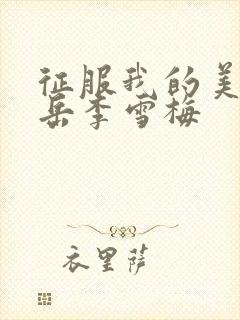 征服我的美
岳李雪梅
衣里萨